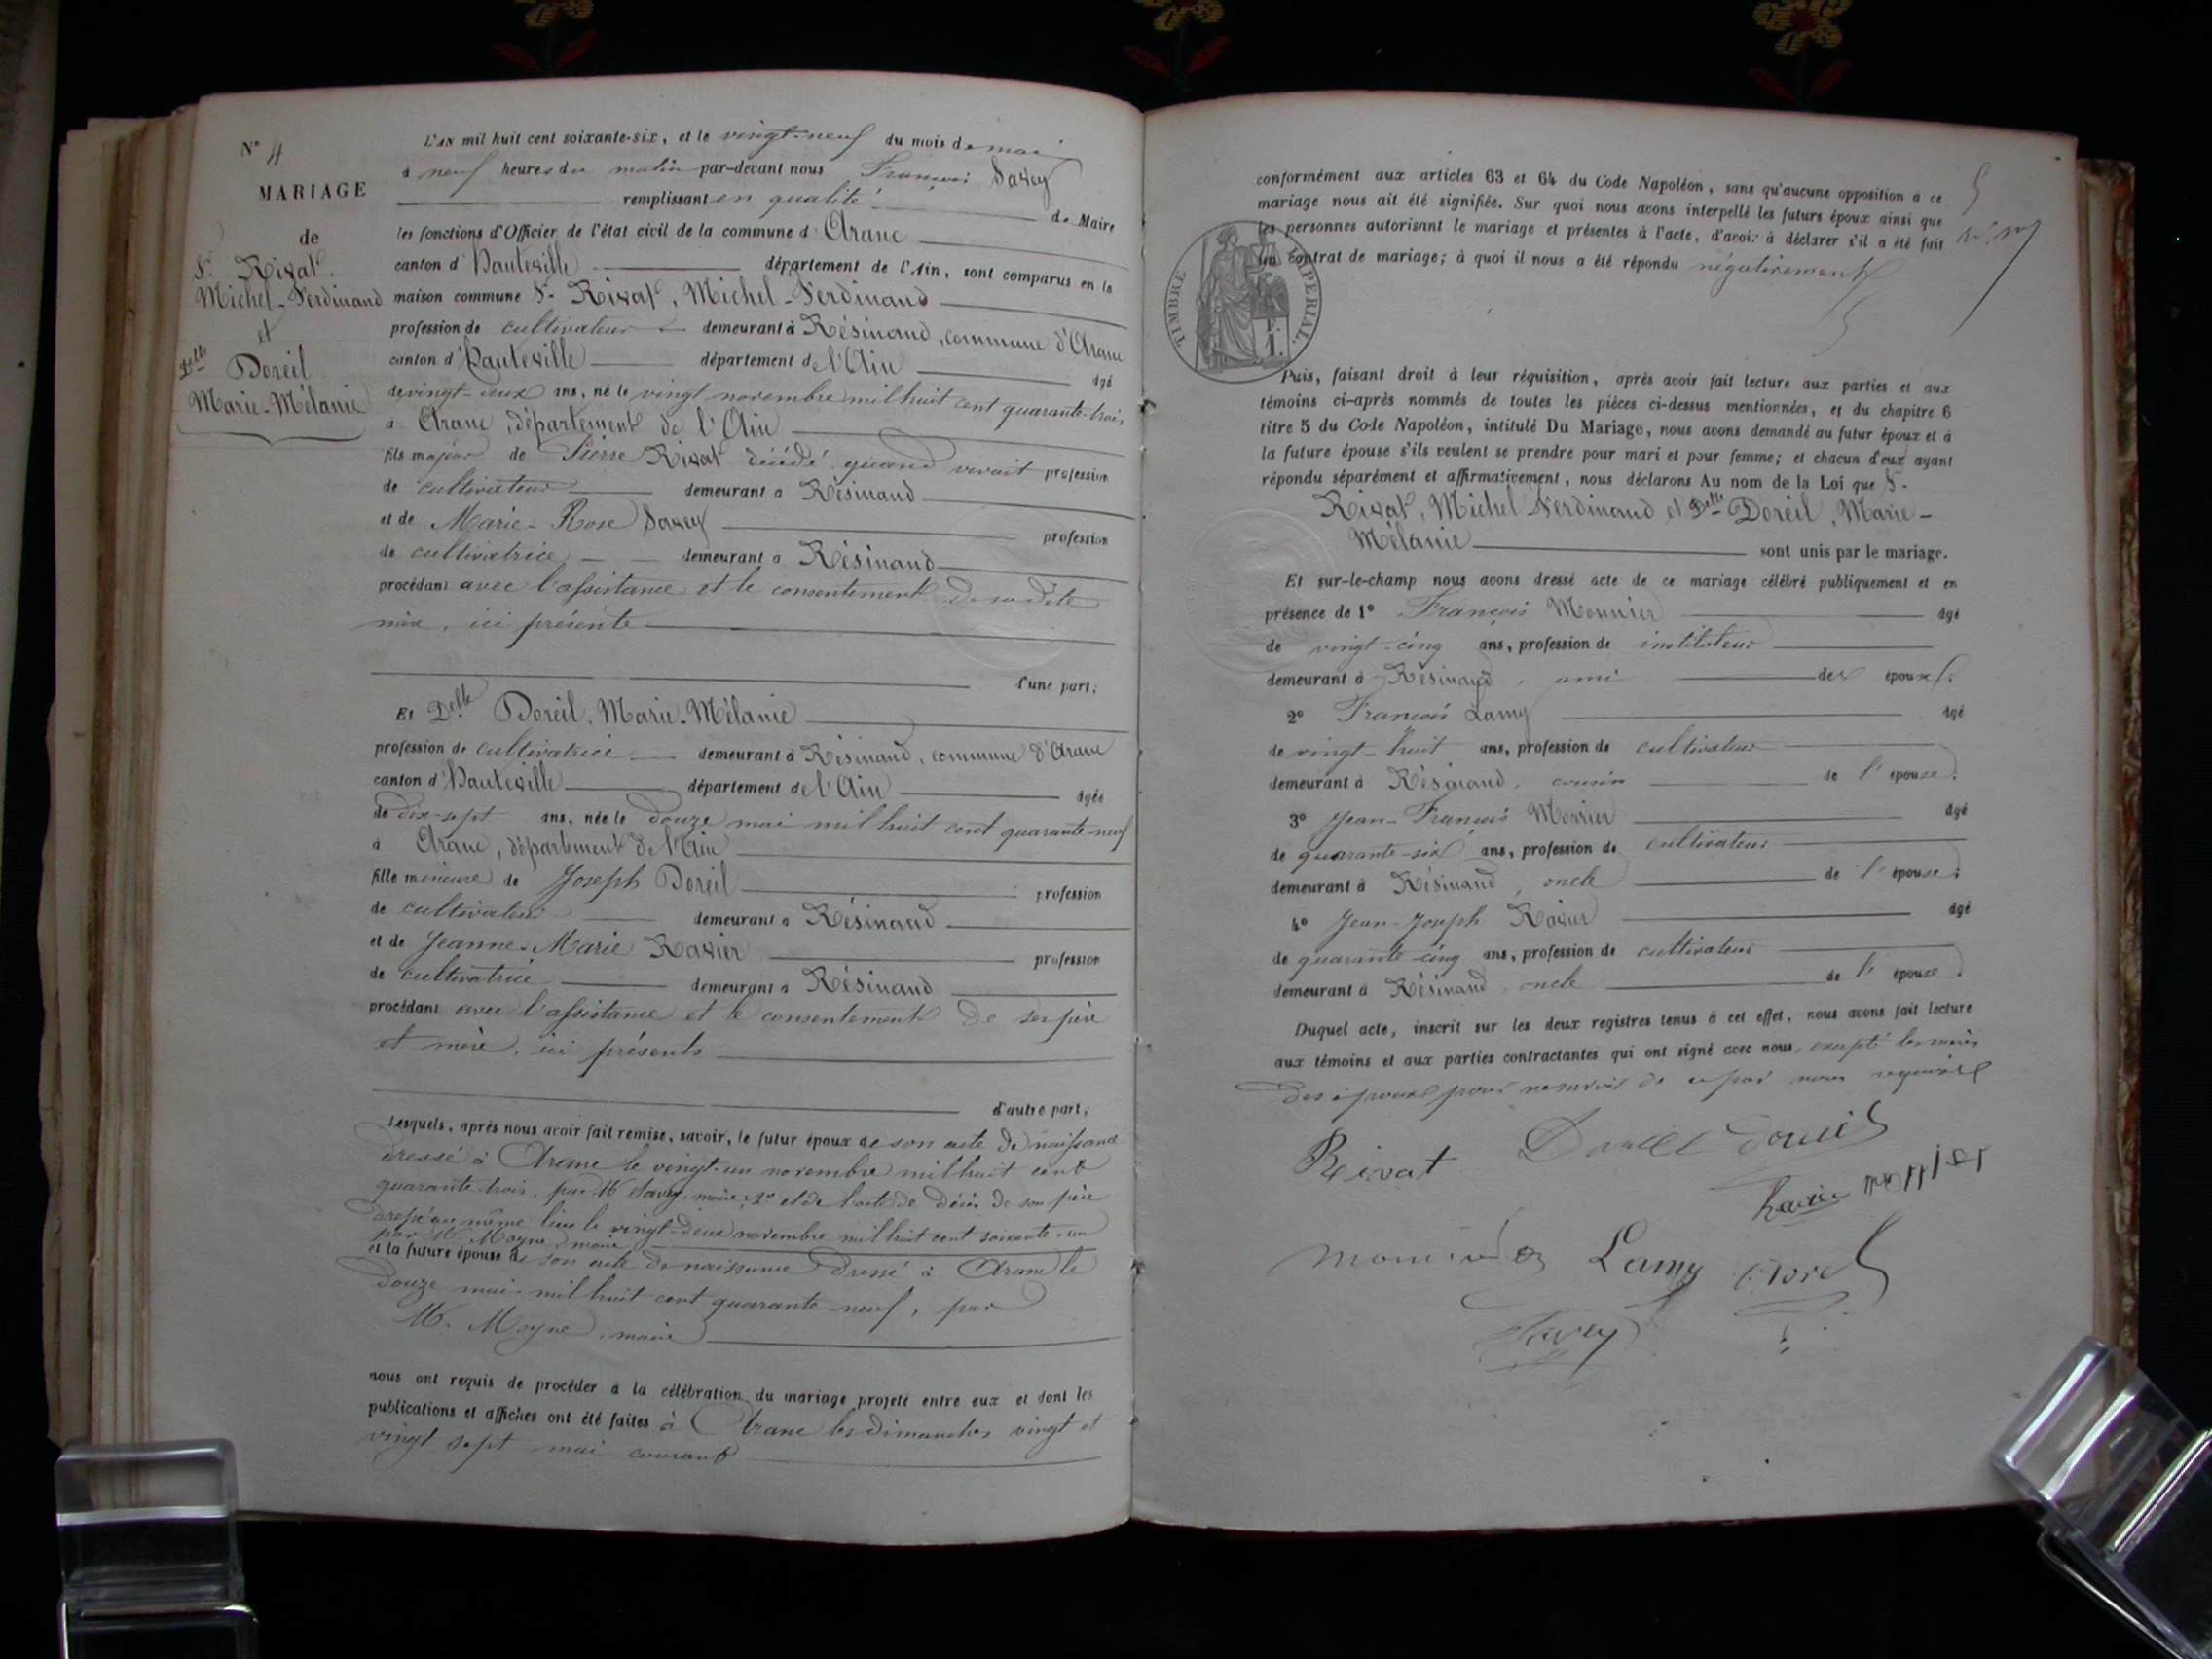 N° 4
MARIAGE
de
Sr Rivat
Michel-Ferdinand
et
Delle Doreil
Marie-Mélanie
L'AN mil huit cent soixante-six, et le vingt-neuf du mois de mai
à neuf heures du matin par-devant nous François Savey
remplissant en qualité de Maire
les fonctions d'Officier de l'état civil de la commune d'Aranc
canton d'Hauteville département de l'Ain, sont comparus en la
maison commune Sr Rivat, Michel-Ferdinand
profession de cultivateur demeurant à Résinand, commune d'Aranc
canton d'Hauteville département de l'Ain âgé
de vingt-deux ans, né le vingt novembre mil huit cent quarante-trois
à Aranc, département de l'Ain
fils majeur de Pierre Rivat décédé quand vivait profession
de cultivateur demeurant à Résinand
et de Marie-Rose Savey profession
de cultivatrice demeurant à Résinand
procédant avec l'assistance et le consentement de sa dite
mère, ici présente
d'une part;
Et Delle Doreil, Marie-Mélanie
profession de cultivatrice demeurant à Résinand, commune d'Aranc
canton d'Hauteville département de l'Ain âgée
de dix-sept ans, née le douze mai mil huit cent quarante-neuf
à Aranc, département de l'Ain
fille mineure de Joseph Doreil profession
de cultivateur demeurant à Résinand
et de Jeanne-Marie Ravier profession
de cultivatrice demeurant à Résinand
procédant avec l'assistance et le consentement de ses père
et mère, ici présents
d'autre part;
Lesquels, après nous avoir fait remise, savoir, le futur époux de son acte de naissance
dressé à Aranc le vingt-un novembre mil huit cent
quarante-trois, par M. Savey, maire; 2° et de l'acte de décès de son père
dressé au même lieu le vingt-deux novembre mil huit cent soixante-un
par M. Moyne, maire
et la future épouse de son acte de naissance dressé à Aranc le
douze mai mil huit cent quarante-neuf, par
M. Moyne, maire
nous ont requis de procéder à la célébration du mariage projeté entre eux et dont les
publications et affiches ont été faites à Aranc les dimanches vingt et
vingt sept mai courant
conformément aux articles 63 et 64 du Code Napoléon, sans qu'aucune opposition à ce
mariage nous ait été signifiée. Sur quoi nous avons interpellé les futurs époux ainsi que
les personnes autorisant le mariage et présentes à l'acte, d'avoir à déclarer s'il a été fait
un contrat de mariage; à quoi il nous a été répondu négativement
TIMBRE IMPERIAL
Puis, faisant droit à leur réquisition, après avoir fait lecture aux parties et aux
témoins ci-après nommés de toutes les pièces ci-dessus mentionnées, et du chapitre 6
titre 5 du Code Napoléon, intitulé Du Mariage, nous avons demandé au futur époux et à
la future épouse s'ils veulent se prendre pour mari et pour femme; et chacun d'eux ayant
répondu séparément et affirmativement, nous déclarons Au nom de la Loi que Sr
Rivat, Michel-Ferdinand et Delle Doreil, Marie-
Mélanie sont unis par le mariage.
Et sur-le-champ nous avons dressé acte de ce mariage célébré publiquement et en
présence de 1° François Monnier âgé
de vingt-cinq ans, profession de instituteur
demeurant à Résinand, ami des époux;
2° François Lamy âgé
de vingt-huit ans, profession de cultivateur
demeurant à Résinand, cousin de l'épouse;
3° Jean-François Monnier âgé
de quarante-six ans, profession de cultivateur
demeurant à Résinand, oncle de l'épouse;
4° Jean-Joseph Ravier âgé
de quarante-cinq ans, profession de cultivateur
demeurant à Résinand, oncle de l'épouse.
Duquel acte, inscrit sur les deux registres tenus à cet effet, nous avons fait lecture
aux témoins et aux parties contractantes qui ont signé avec nous, excepté les mères
des époux pour ne savoir de ce par nous requises
Rivat
Ravier
Lamy
Savey